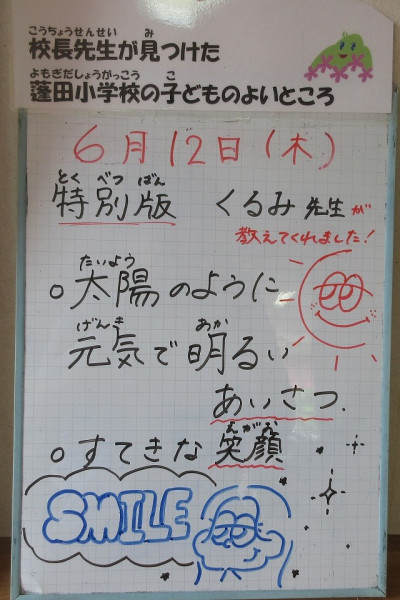 こうちょうせんせい み
校長先生が見つけた
よもぎだしょうがっこう こ
蓬田小学校の子どものよいところ
6月12日(木)
とくべつばん
特別版 くるみ先生が
教えてくれました!
たいよう
○太陽のように
げんき あか
元気で明るい
あいさつ.
えがお
○すてきな笑顔
SMILE